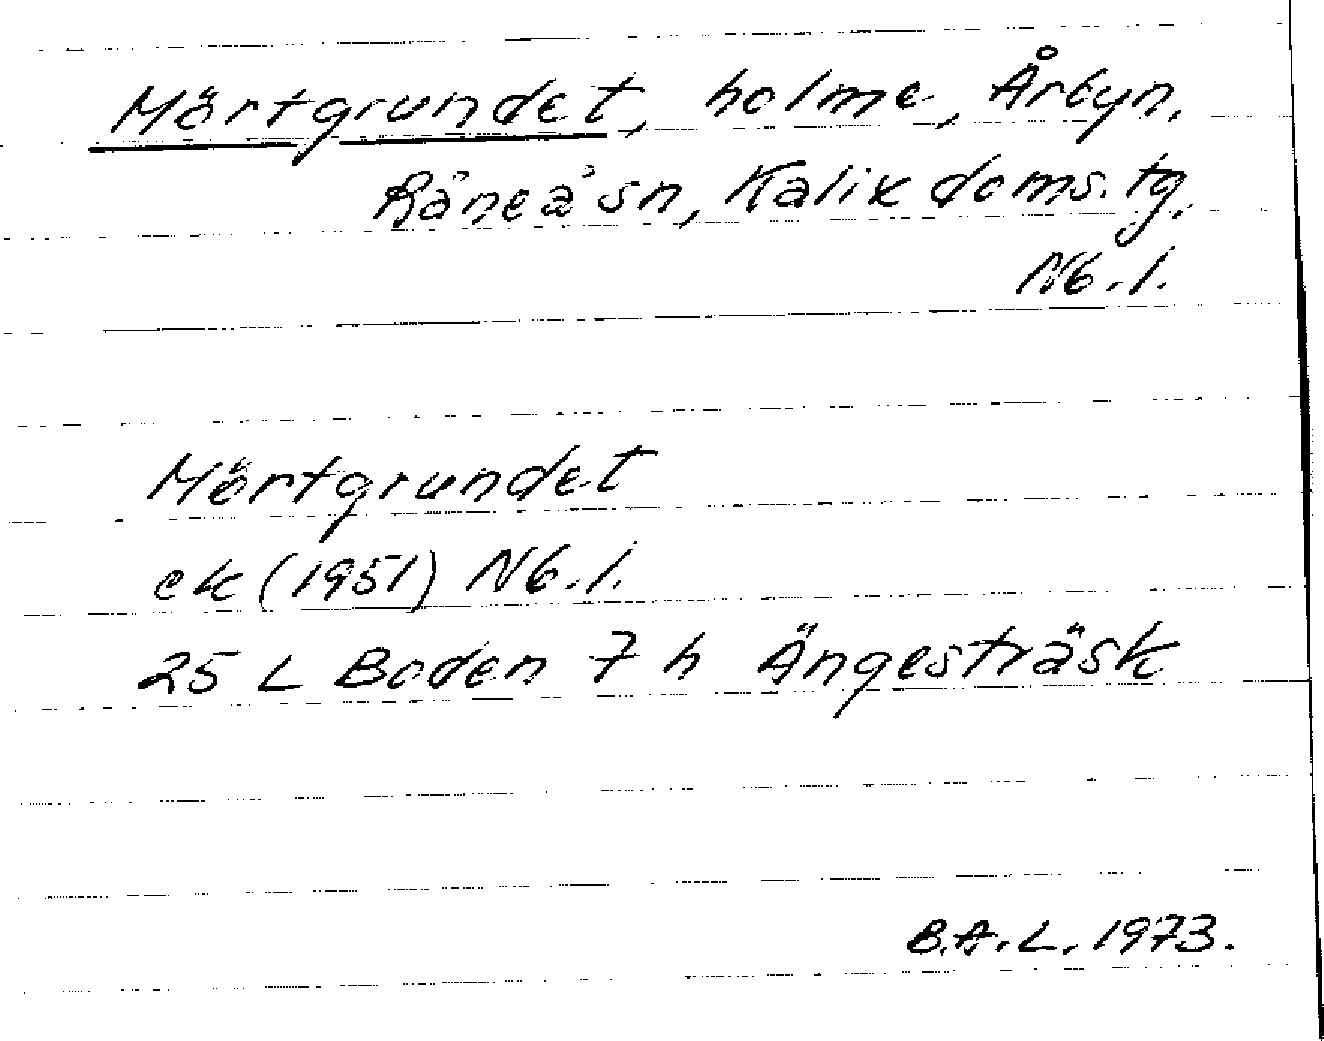 Mörtgrundet, holme, Årbyn,
Råneå sn, Kalix doms. tg.
Nb. l.
Mörtgrundet
ek (1951) Nb. l.
25 L Boden 7 h Ängesträsk
B.A.L. 1973.